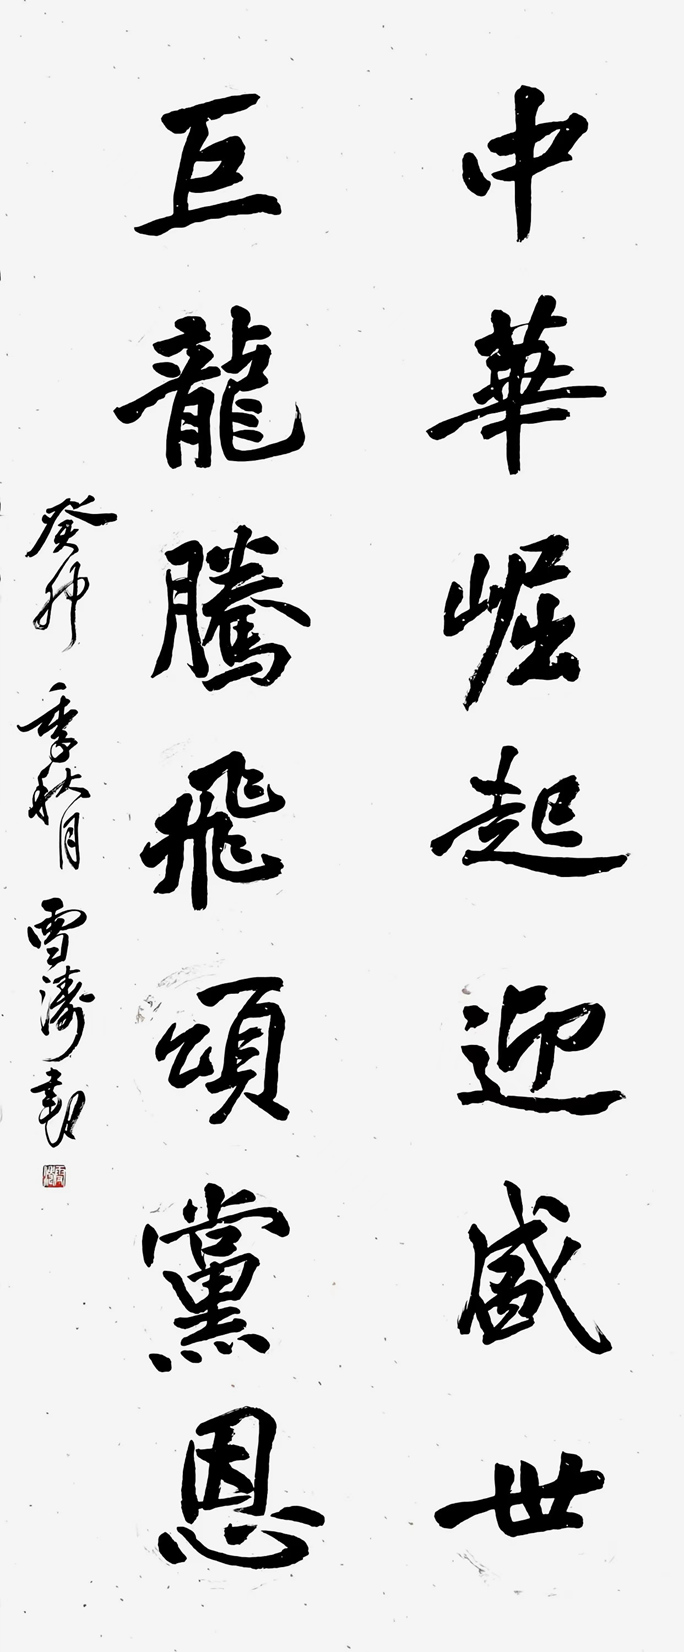 中華崛起迎盛世
巨龍騰飛頌黨恩
癸卯季秋月雪濤書